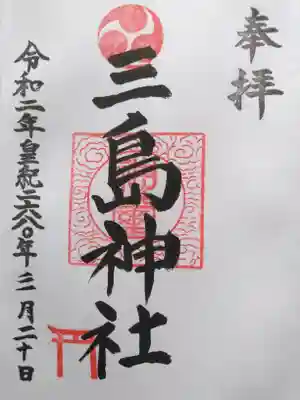 奉拝
三島神社
令和二年皇紀二六八〇年三月二十日